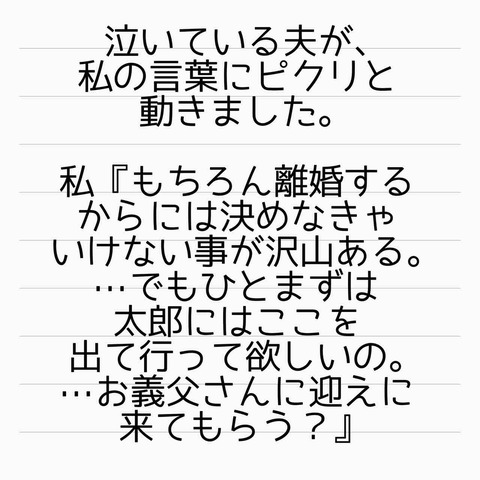 泣いている夫が、
私の言葉にピクリと
動きました。
私『もちろん離婚する
からには決めなきゃ
いけない事が沢山ある。
…でもひとまずは
太郎にはここを
出て行って欲しいの。
…お義父さんに迎えに
来てもらう？』